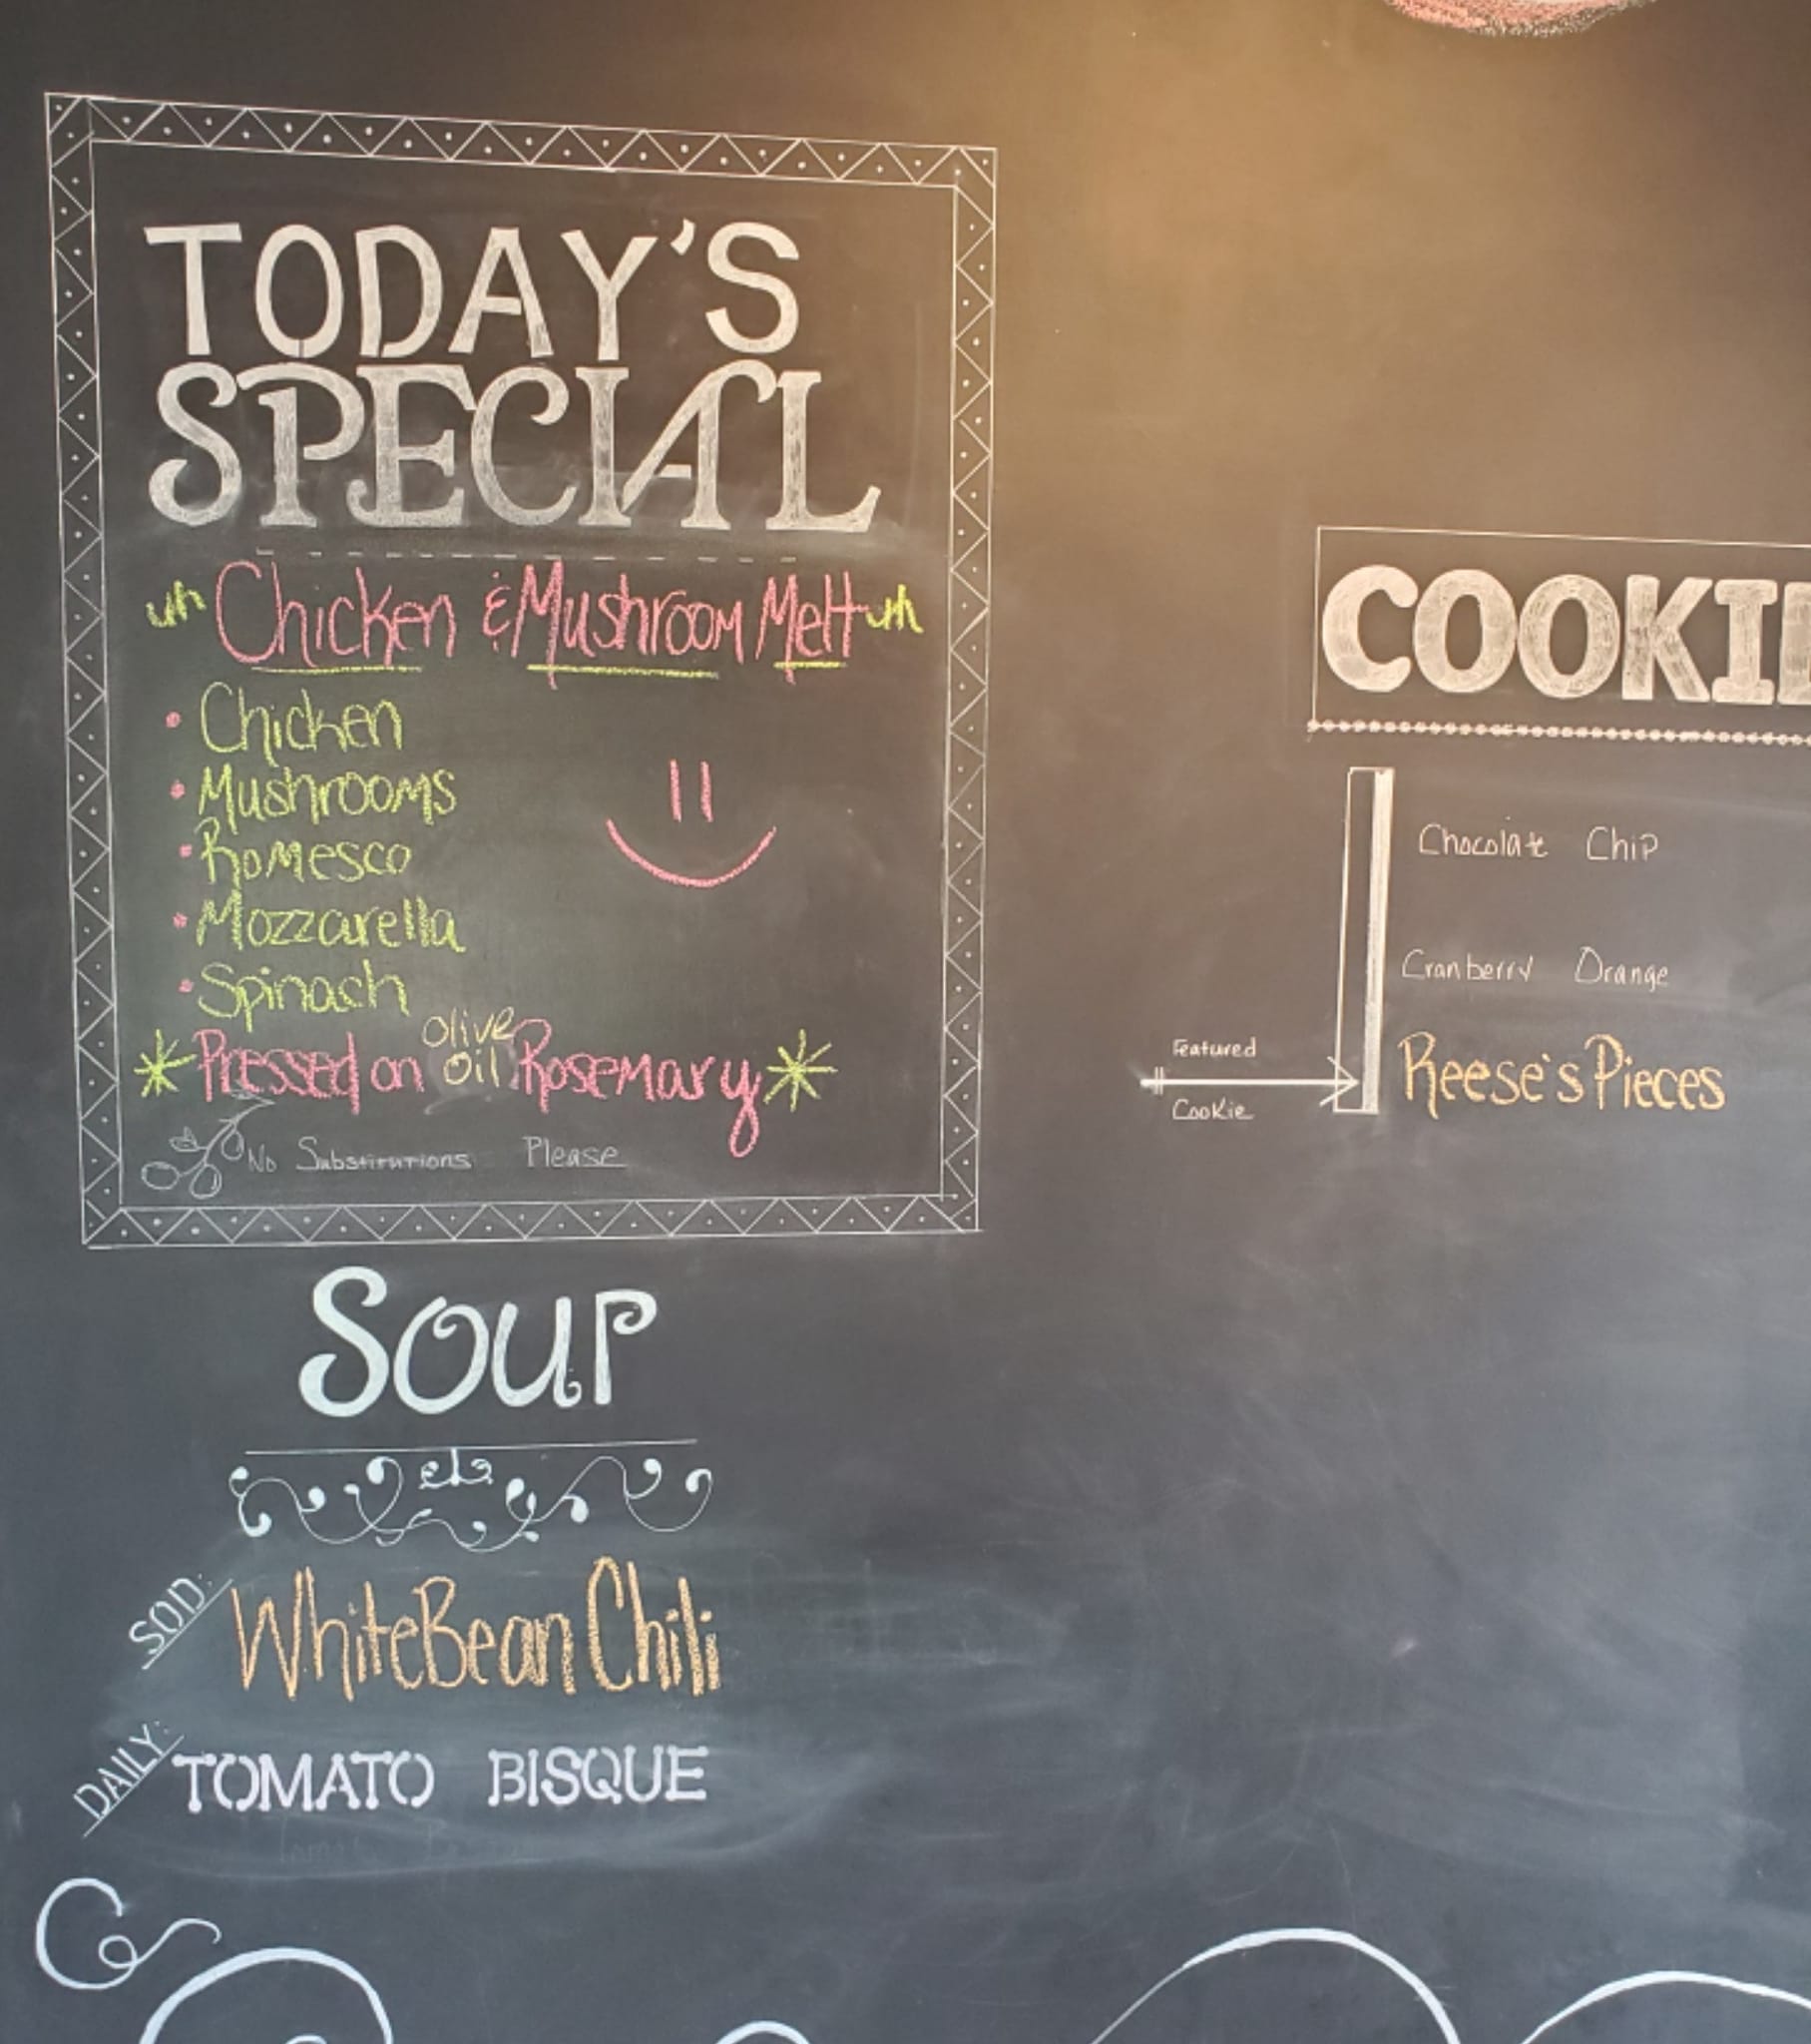 TODAY'S
SPECIAL
Chicken & Mushroom Melt
• Chicken
• Mushrooms
• Romesco
• Mozzarella
• Spinach
* Pressed on Olive Oil Rosemary *
No Substitutions Please
SOUP
SOD: White Bean Chili
DAILY: TOMATO BISQUE
COOKI
Chocolate Chip
Cranberry Orange
Featured
Cookie
Reese's Pieces